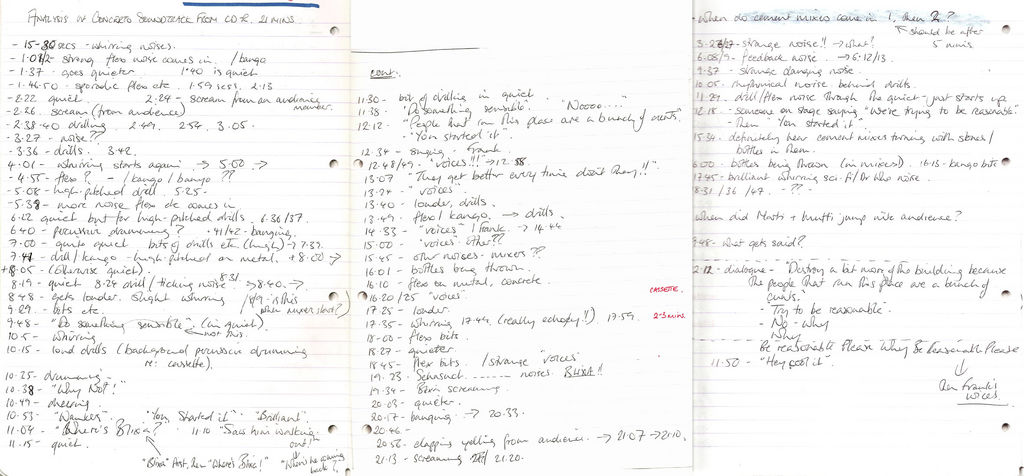 ANALYSIS OF CONCERTO SOUNDTRACK FROM CD R. 21 MINS.
- 15-30 secs - whirring noises.
- strong flexo noise comes in. /bango
- 1.37 - goes quieter 1.40 is quiet
- 1.46-50 - sporadic flexo etc. 1.59 secs. 2.13
- 2.22 quiet. 2.24 - scream from an audience member.
- 2.26. scream (from audience)
- 2.38-40 drilling. 2.49. 2.54. 3.05.
- 3.27 - noise??
- 3.36 - drills. 3.42.
4.01 - whirring starts again → 5.00 →
- 4.55 - flexo? - / bango / bango ??
- 5.08 - high-pitched drill. 5.25.
- 5.38 - more noise flexo etc comes in
6.22 quiet but for high-pitched drills. 6.36/37.
6.40 - percussive drumming? .41/42 - banging.
7.00 - quite quiet. bits of drills etc (high) → 7.37.
7.41 - drill / kango - high-pitched on metal. + 8.00 →
+ 8.05 - (otherwise quiet).
8.19 - quiet 8.24 drill / ticking noise 8.31 → 8.40 →.
8.48 - gets louder. slight whirring / is this
9.29 - bits etc. when mixer start?)
9.48 - "Do something sensible" (in quiet)
not this
10.5 - whirring
10.15 - loud drills (background percussive drumming
re: cassette).
10.25 - drumming
10.38 - "Why Not!"
10.49 - cheering.
10.53 - "Wankers". "You Started it". "Brilliant".
11.04 - "Where's Blixa?" 11.10 "Saw him walking out!"
11.15 - quiet.
"Blixa" first, then "Where's Blixa!" "When's he coming back?"
cont.
11.30 - bit of drilling in quiet
11.38 - "Do something sensible". "Noooo...."
12.12 - "People that run this place are a bunch of cunts."
- "You started it".
12.34 - singing. Frank
12.48/49 - "voices!!!" → 12.58
13.07 "They get better every time don't they!!"
13.24 - "voices".
13.40 - louder, drills.
13.49 - flexo / kango. → drills.
14.33 - "voices" / Frank. → 14.44
15.00 - "voices" other??
15.45 - other noises - mixers ??
16.01 - bottles being thrown.
16.10 - flexo on metal, concrete.
16.20/25 "voices"
CASSETTE.
17.25 - louder.
17.35 - whirring 17.44 (really echoey!!) 17.59.
2-3 mins.
18.00 - flexo bits.
18.27 - quieter.
18.45 - flexo bits. / strange "voices"
19.23 - Sehnsuch ------- noises.
19.34 - Blixa screaming
20.03 - quieter.
20.17 - banging. → 20.33.
20.46 -
20.56 - clapping yelling from audience. → 21.07 → 21.10.
21.13 - screaming 21.20.
- When do cement mixers come in 1, then 2?
should be after
5 mins
3.27 - strange noise!! → what?
6.08/9 - feedback noise. → 6.12/13.
9.37 - strange clanging noise.
10.05 - rhythmical noise behind drills.
11.27. drill / flexo noise through the quiet - just starts up
12.18 - someone on stage saying "We're trying to be reasonable"
- Then "You started it".
15.34. definitely hear cement mixer turning with stones /
bottles in them.
16.00 - bottles being thrown (in mixers). 16.15 - bango bits
17.45 - brilliant whirring sci-fi/Dr Who noise.
18.31 / 36 / 47. - ?? -
When did Mufti + Mutti jump into audience?
9.48 - What gets said?
2.12 - dialogue - "Destroy a bit more of the building because
the people that run this place are a bunch of
cunts."
- Try to be reasonable -
- No - Why
Why
Be reasonable Please Why Be Reasonable Please
11.50 - "Hey pool it".
↓
Then Frank's
voices.